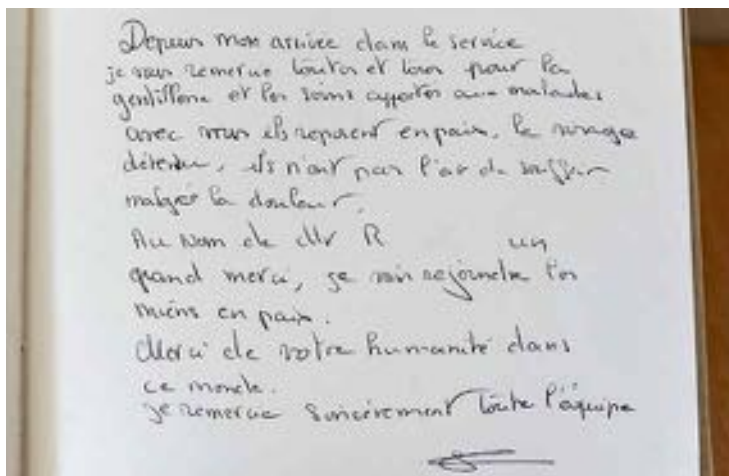 Depuis mon arrivée dans le service
je vous remercie toutes et tous pour la
gentillesse et les soins apportés aux malades
avec vous ils reposent en paix, le visage
détendu, ils n'ont pas l'air de souffrir
malgré la douleur.
Au nom de Mr R un
grand merci, je vais rejoindre les
miens en paix.
Merci de votre humanité dans
ce monde.
je remercie sincèrement toute l'équipe